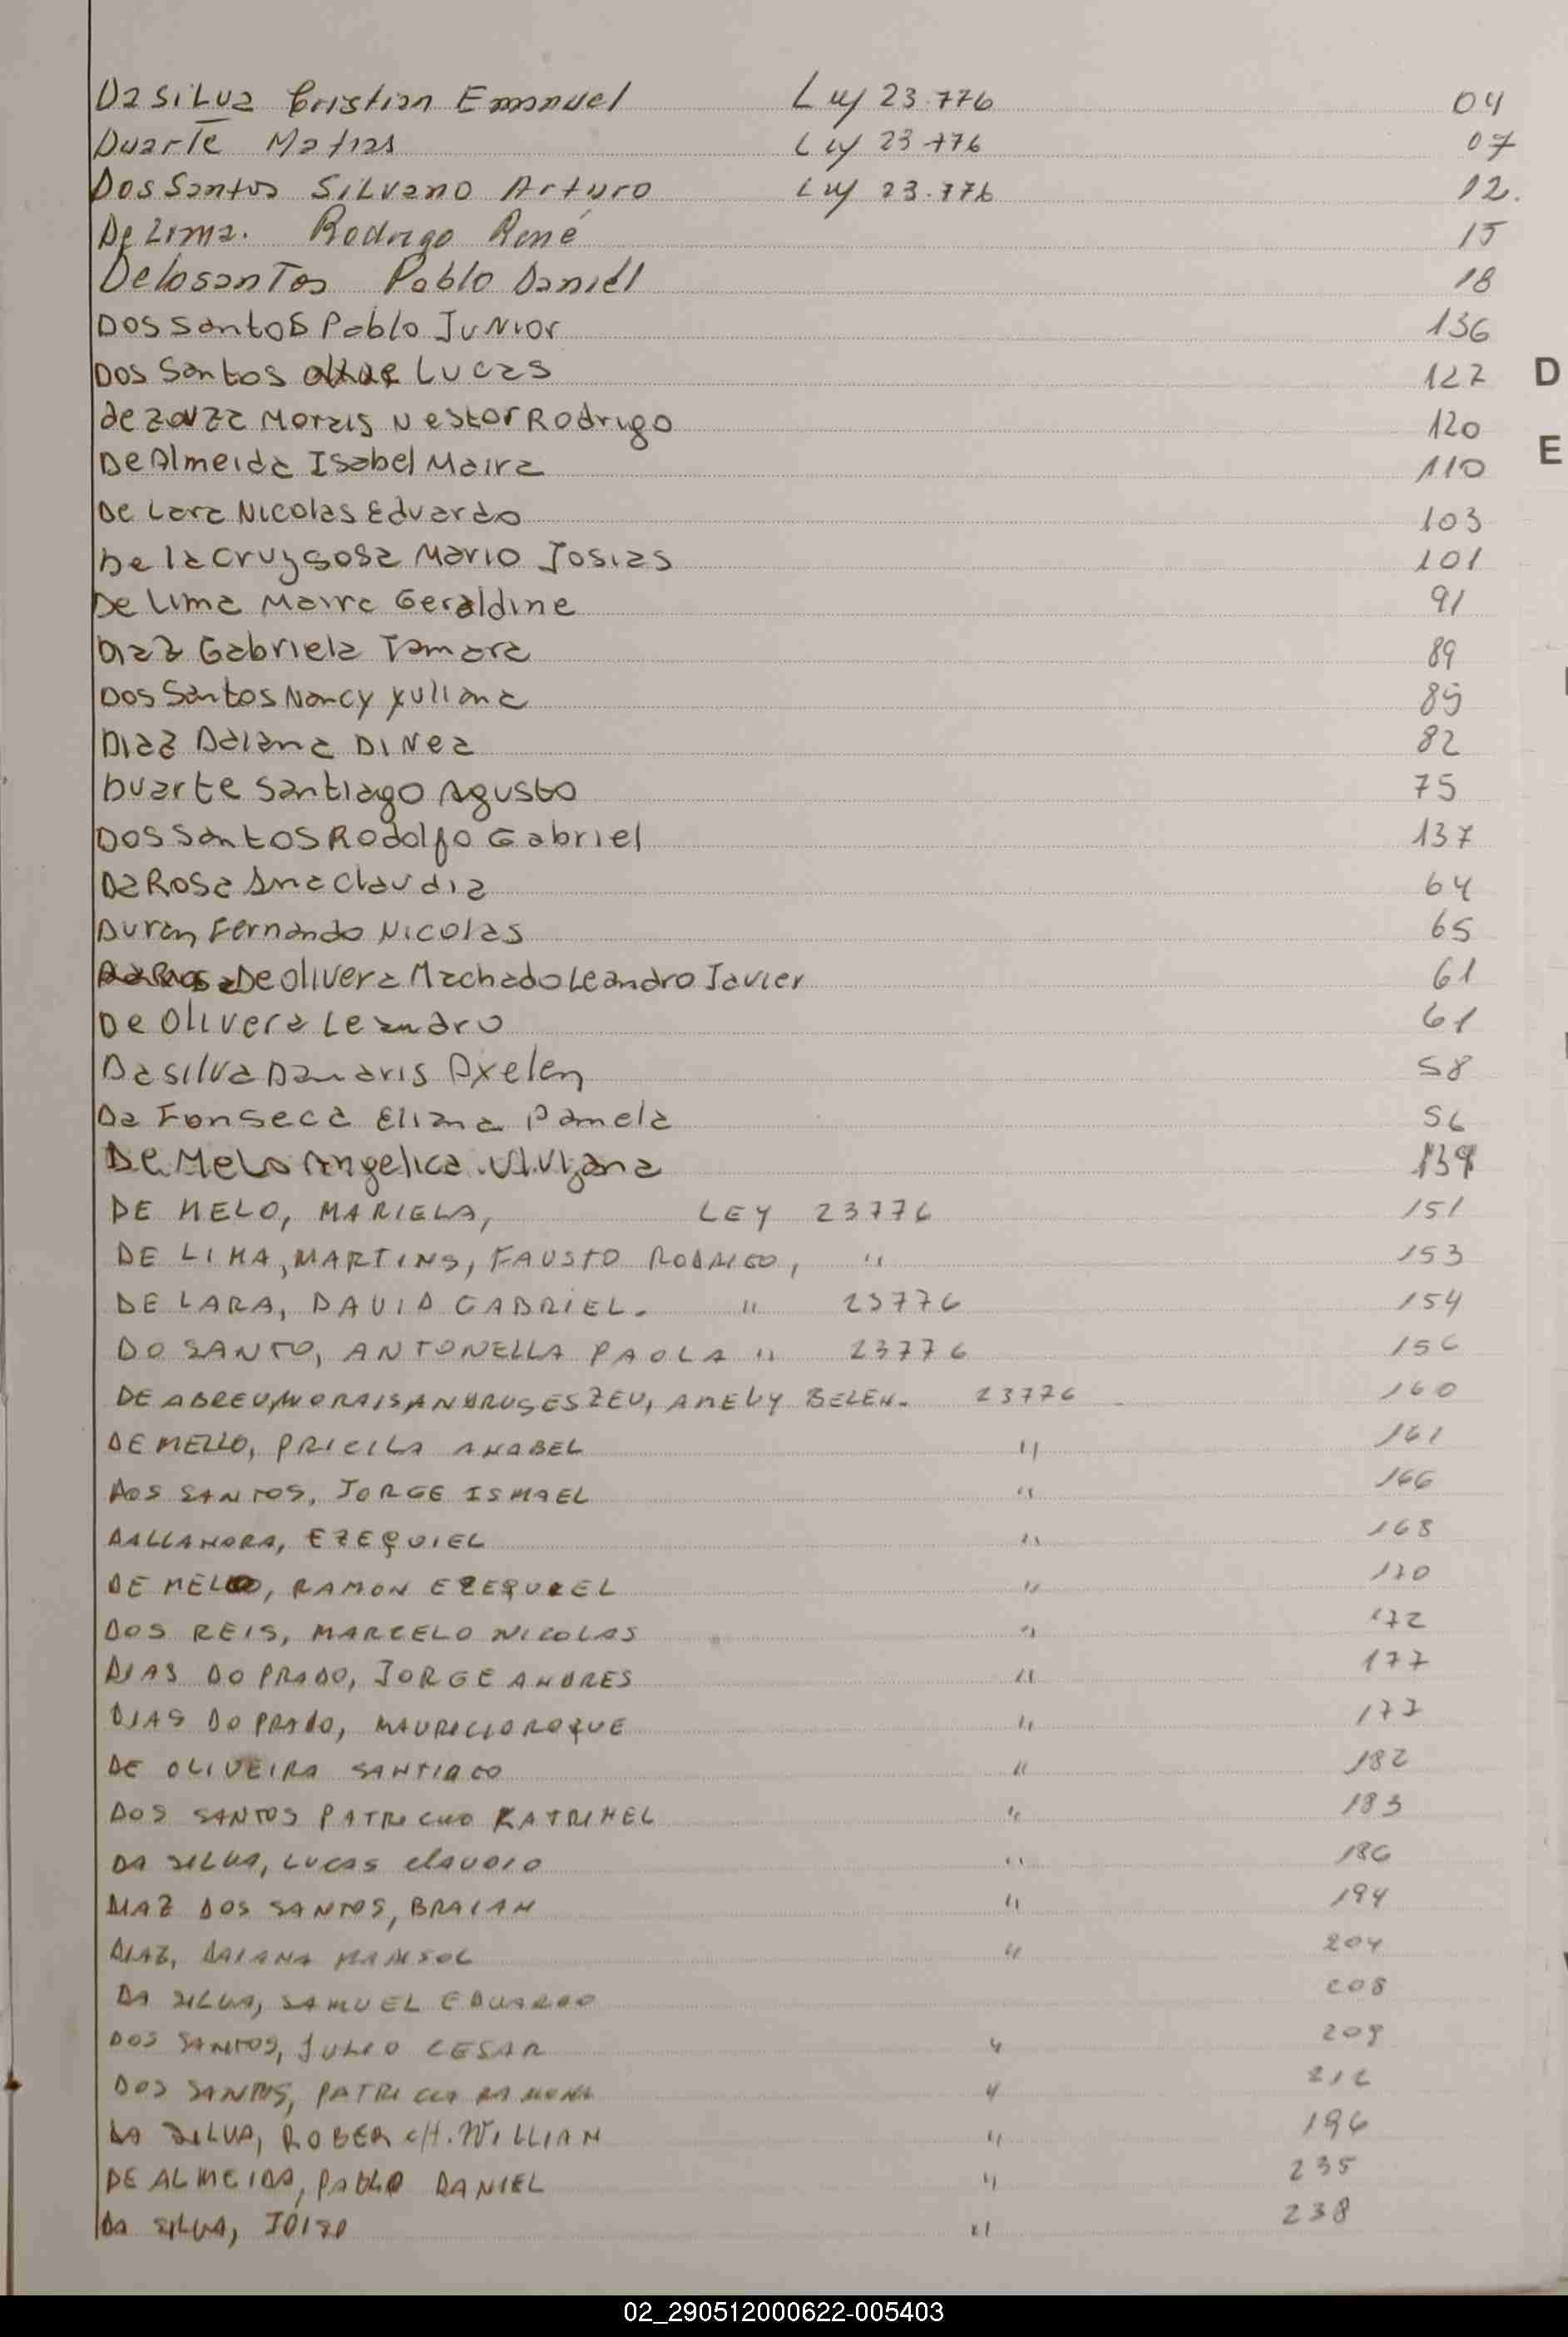 Da SiLva Cristian Emanuel Ley 23.776 04
Duarte Matias Ley 23776 07
Dos Santos SiLvano Arturo Ley 23.776 12.
De Lima. Rodrigo René 15
Delosantos Pablo Daniel 18
Dos santos Pablo Junior 136
Dos Santos Lucas 127
D
de Morais Nestor Rodrigo 120
De Almeida Isabel Maira 110
E
De Lara Nicolas Eduardo 103
De la cruz sosa Mario Josias 101
De Lima Maira Geraldine 91
Diaz Gabriela Tamara 89
Dos Santos Nancy Yuliana 89
Diaz Daiana Dinea 82
Duarte Santiago Agusto 75
Dos Santos Rodolfo Gabriel 137
Da Rosa Ana Claudia 64
Duran Fernando Nicolas 65
De olivera Machado Leandro Javier 61
De Olivera Leandro 61
Da silva Damaris Axelen 58
Da Fonseca Eliana Pamela 56
De Melo Angelica Viviana 139
DE MELO, MARIELA, LEY 23776 151
DE LIMA, MARTINS, FAUSTO RODRIGO, " 153
DE LARA, DAVID GABRIEL. " 23776 154
DO SANTO, ANTONELLA PAOLA " 23776 156
DE ABREU, MORAIS, AMELY BELEN. 23776 160
DE MELLO, PRICILA ANABEL " 161
DOS SANTOS, JORGE ISMAEL " 166
DALLANORA, EZEQUIEL " 168
DE MELO, RAMON EZEQUIEL " 170
DOS REIS, MARCELO NICOLAS " 172
DIAS DO PRADO, JORGE ANDRES " 177
DIAS DO PRADO, MAURICIO ROQUE " 177
DE OLIVEIRA SANTIAGO " 182
DOS SANTOS PATRICIO KATRIHEL " 183
DA SILVA, LUCAS claudio " 186
DIAZ DOS SANTOS, BRAIAN " 194
DIAZ, DAIANA MARISOL " 204
DA SILVA, SAMUEL EDUARDO 208
DOS SANTOS, JULIO CESAR " 209
DOS SANTOS, PATRICIA RAMONA " 212
DA SILVA, ROBER CH. WILLIAN " 196
DE ALMEIDA, PABLO DANIEL " 235
DA SILVA, " 238
02_290512000622-005403